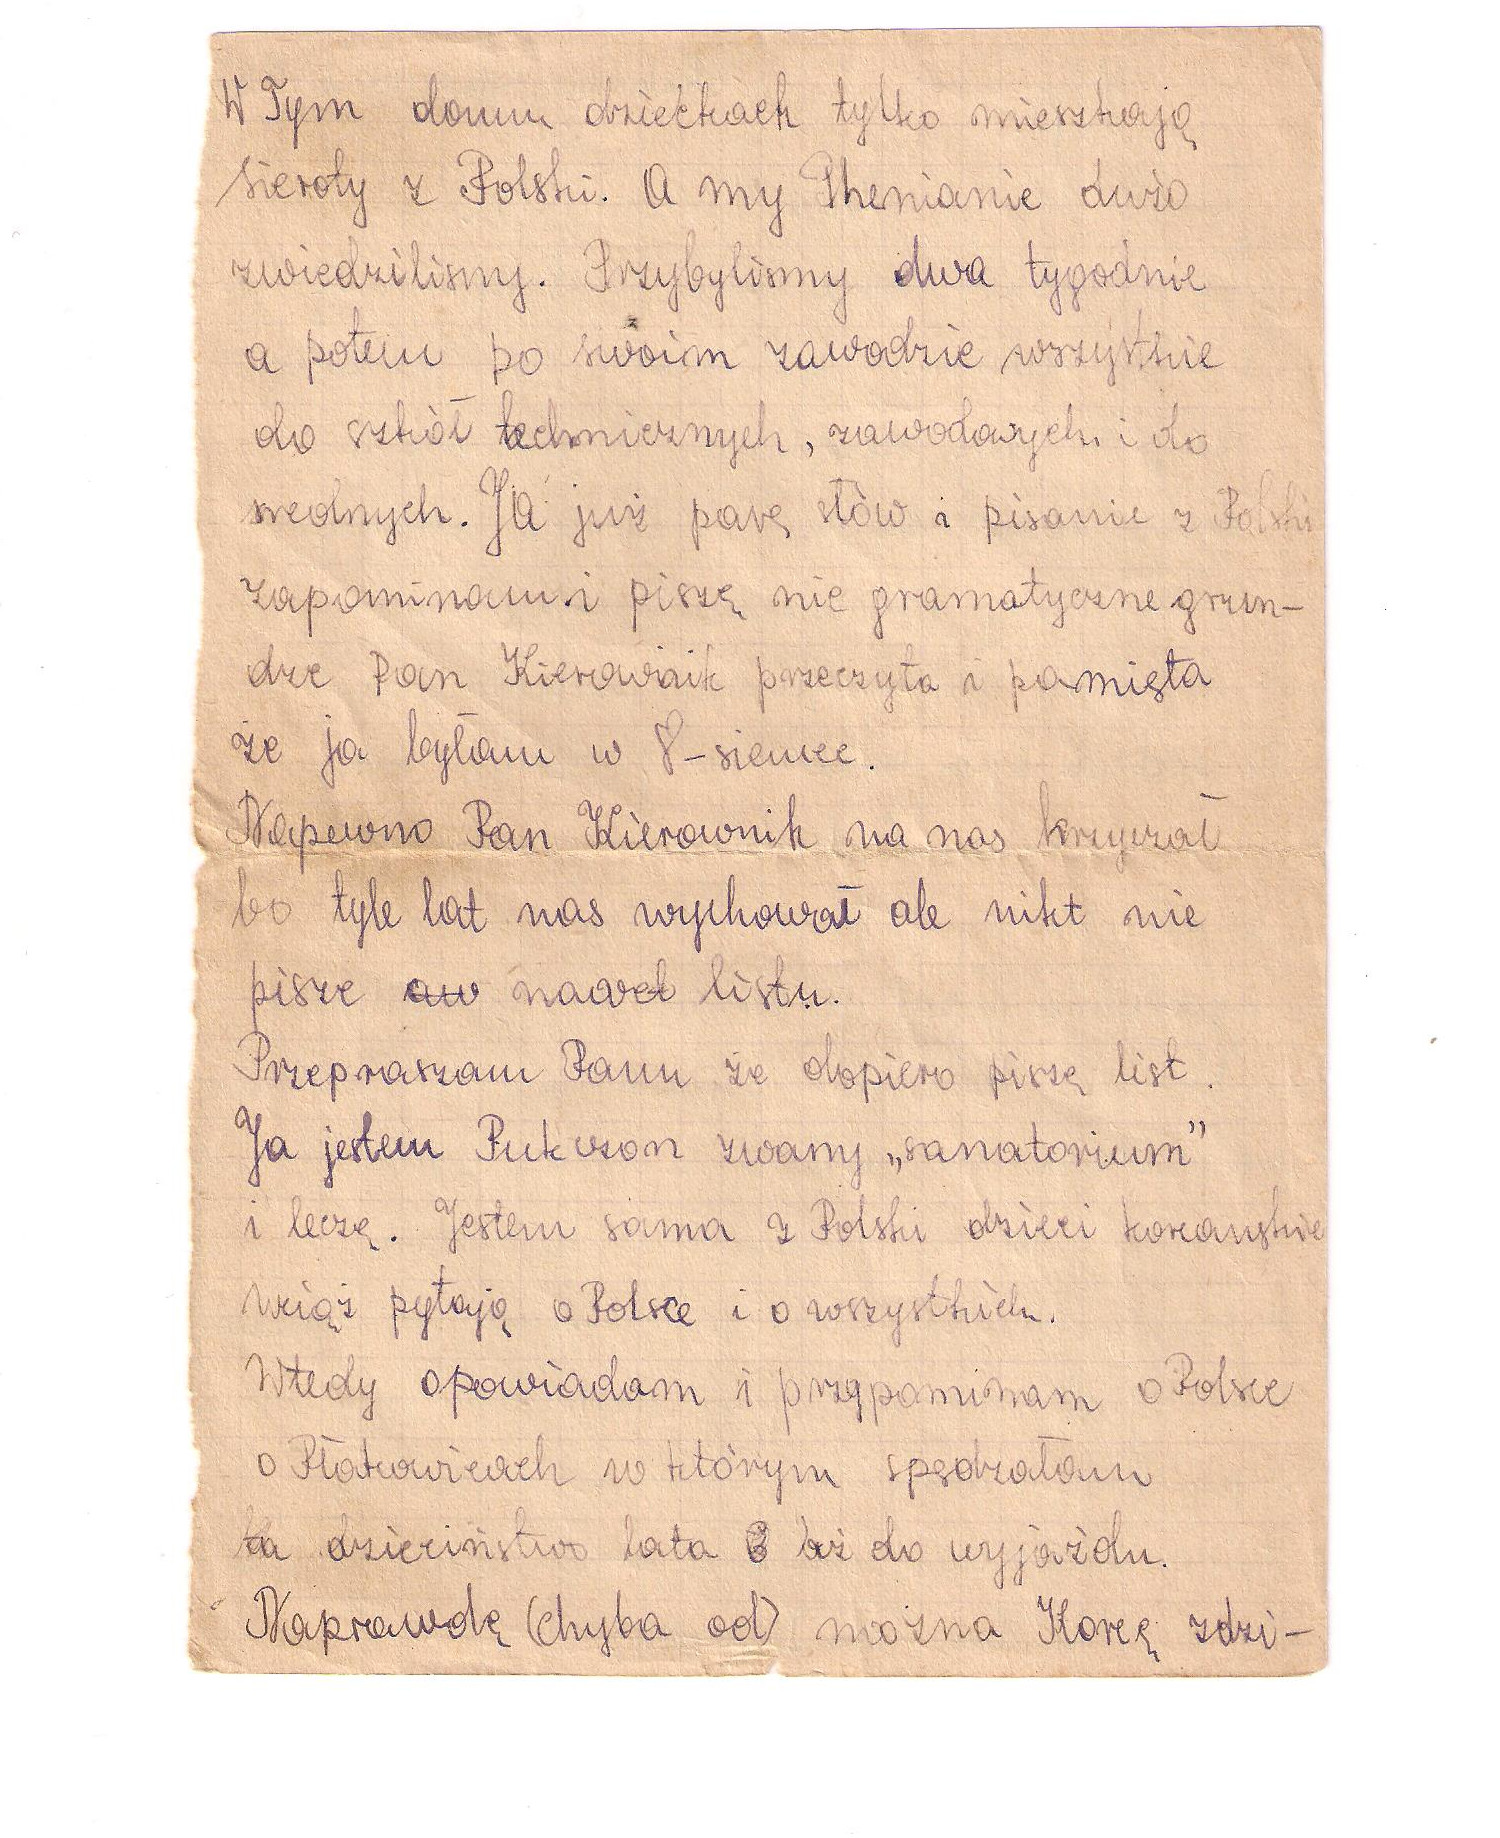 W Tym domu dziećkach tylko mieszkają
sieroty z Polski. A my Phenianie dużo
zwiedziliśmy. Przybyliśmy dwa tygodnie
a potem po swoim zawodzie wszystkie
do szkół technicznych, zawodowych i do
średnych. JA już parę słów i pisanie z Polski
zapominam i piszę nie gramatyczne grun-
dze Pan Kierownik przeczyta i pamięta
że ja byłam w 8-siemce.
Napewno Pan Kierownik na nas krzyczał
bo tyle lat nas wychował ale nikt nie
pisze nawet listu.
Przepraszam Panu że dopiero piszę list.
Ja jestem Pukczon zwany „sanatorium”
i leczę. Jestem sama z Polski dzieci koreanskie
wciąż pytają o Polsce i o wszystkich.
Wtedy opowiadam i przypominam o Polsce
o Płakowicach w którym spędzałam
ta dzieciństwo lata aż do wyjażdu.
Naprawdę (chyba od) można Koreę zdzi-